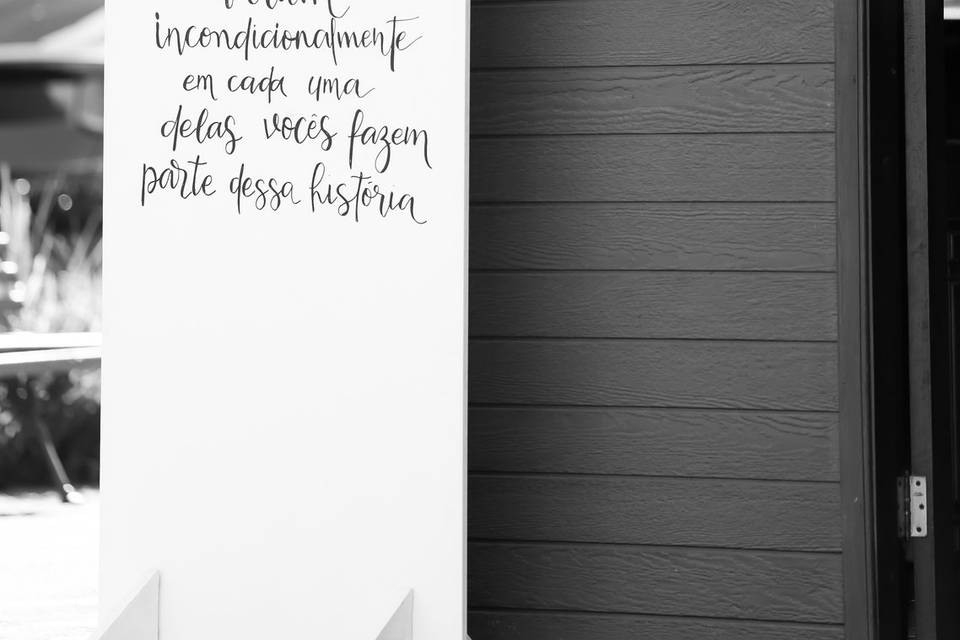 incondicionalmente
em cada uma
delas vocês fazem
parte dessa história